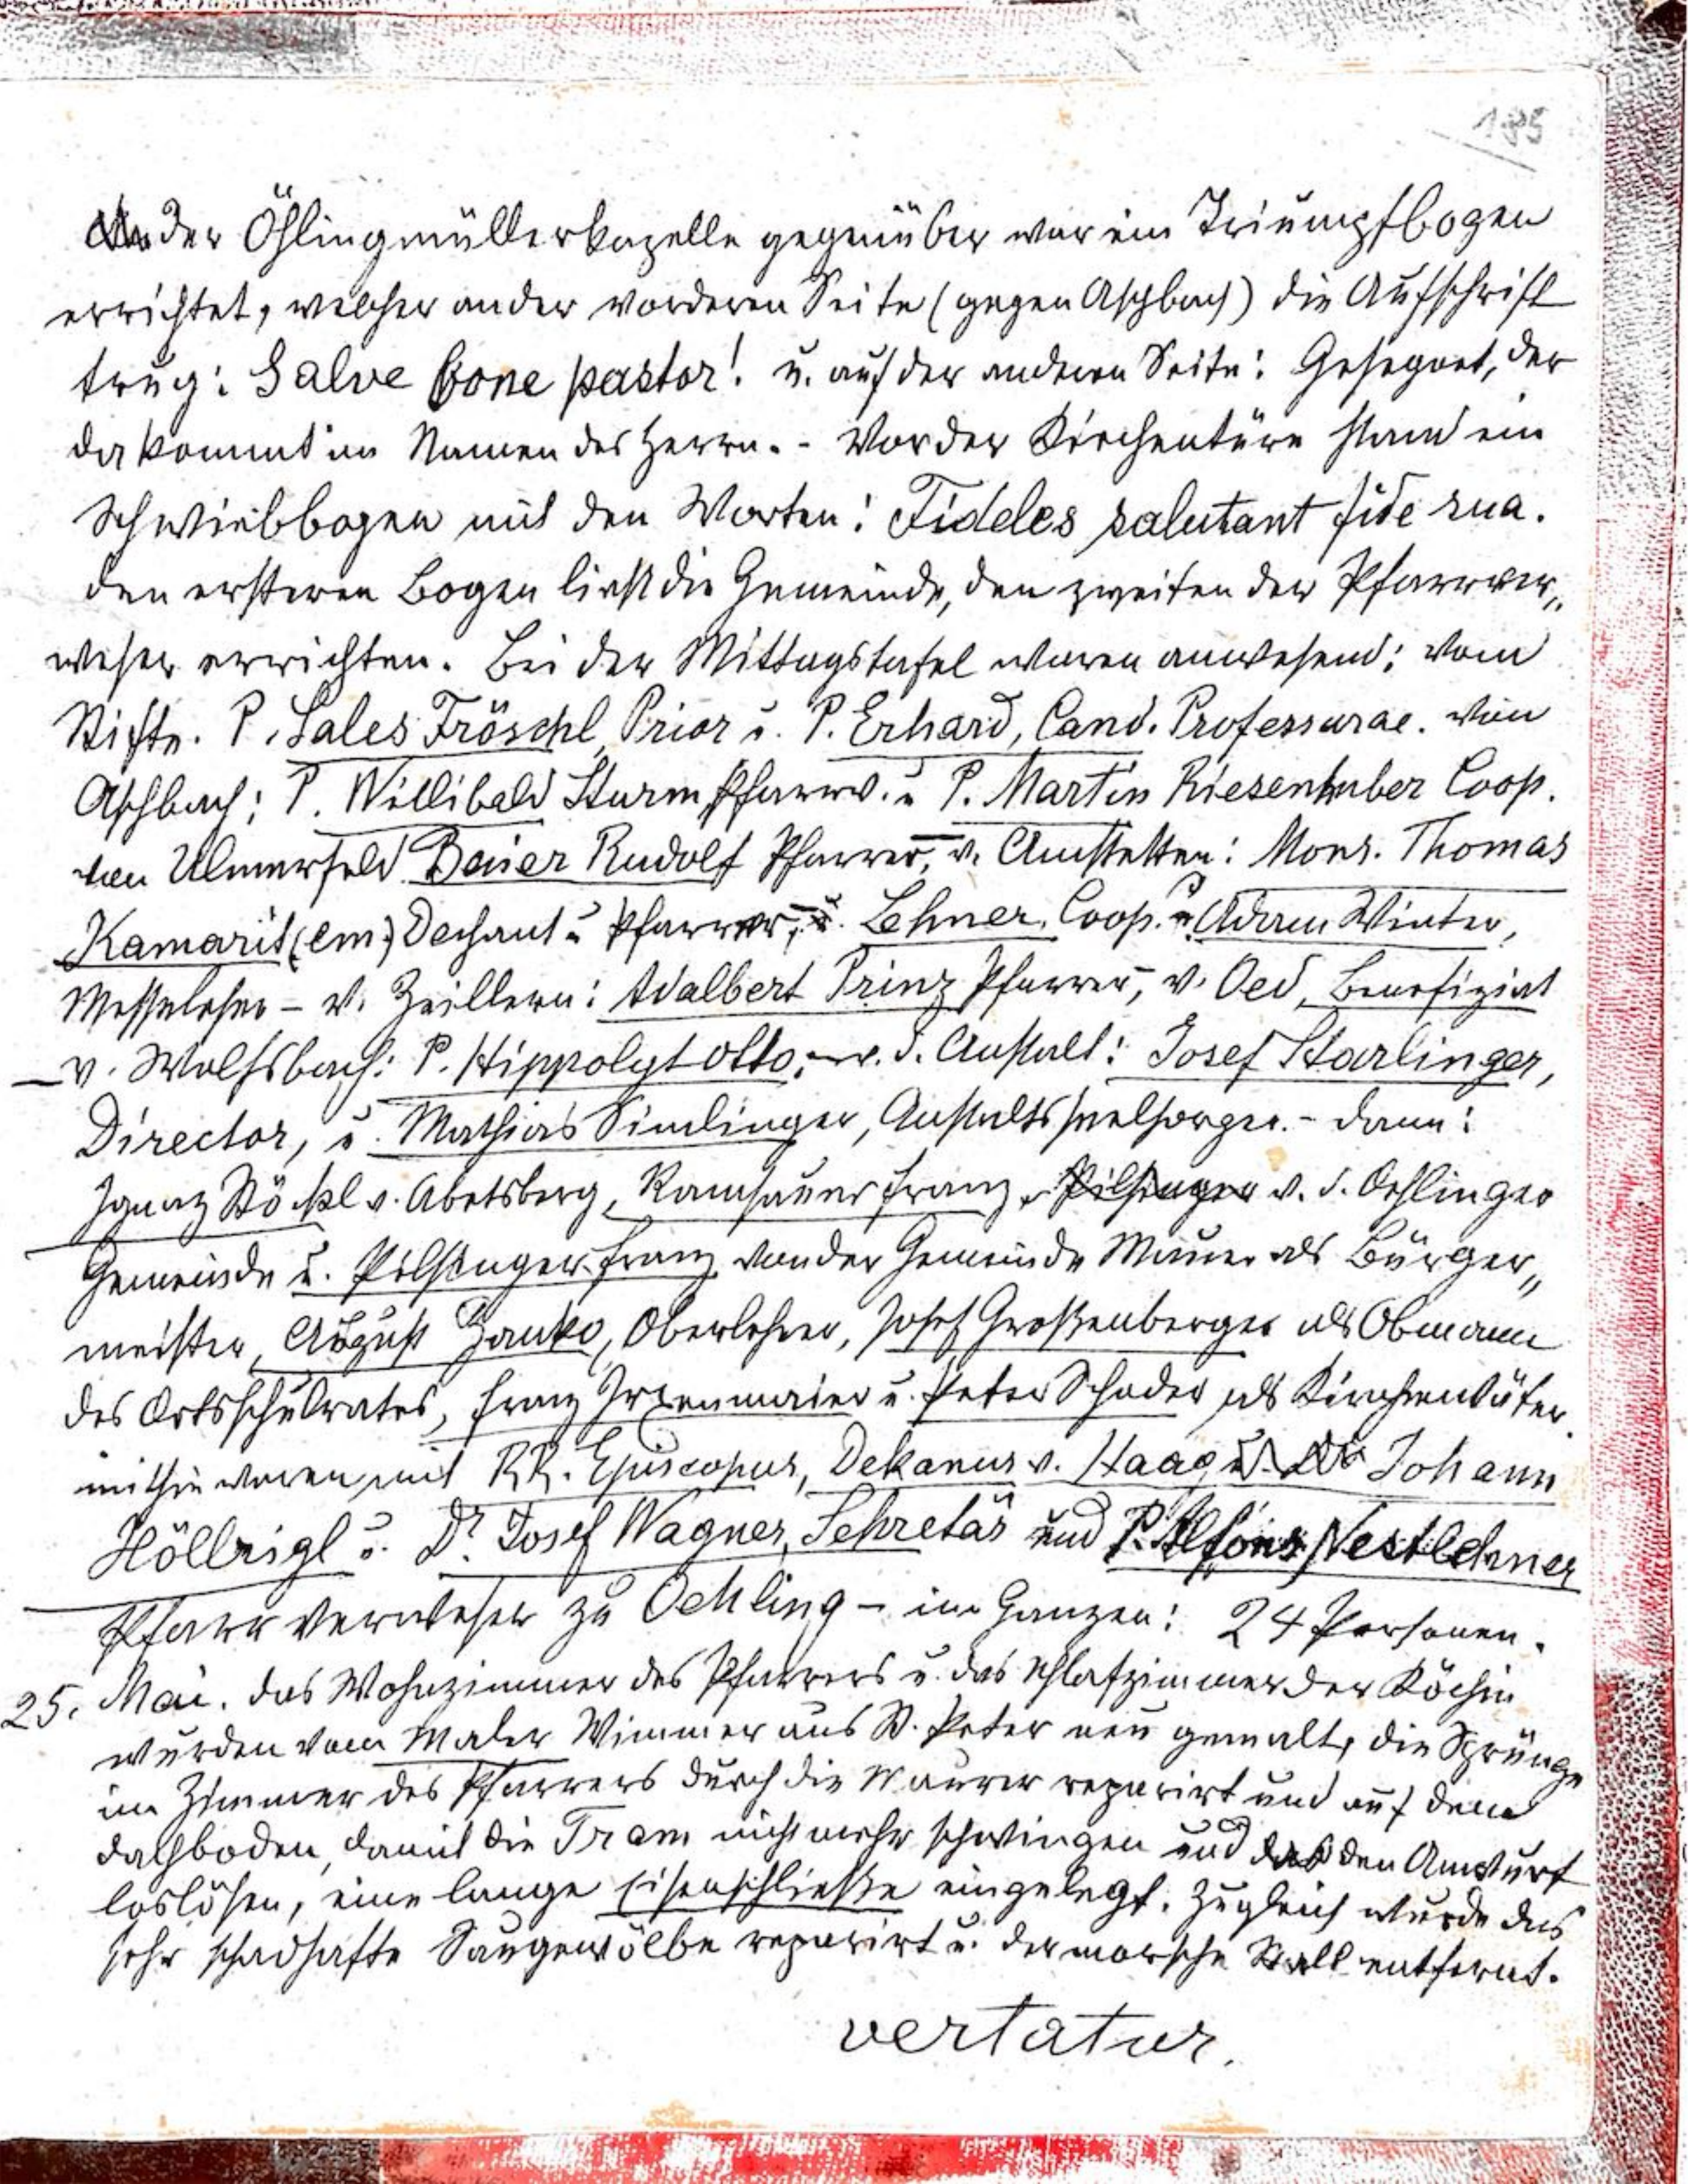 185
der Öhlingmüllerkapelle gegenüber war ein Triumpfbogen
errichtet, welcher an der vorderen Seite (gegen Aschbach) die Aufschrift
trug: Salve bone pastor! u. auf der anderen Seite: Gesegnet, der
da kommt im Namen des Herrn. - Vor der Kirchentüre stand ein
Schwiebbogen mit den Worten: Fideles salutant fide sua.
Den ersteren Bogen ließ die Gemeinde, den zweiten der Pfarrver„
weser errichten. Bei der Mittagstafel waren anwesend: vom
Stifte. P. Sales Fröschl, Prior u. P. Erhard, Cand. Professurae. von
Aschbach: P. Willibald Sturm, Pfarrv. u P. Martin Riesenhuber Coop.
von Ulmerfeld Baier Rudolf Pfarrer, v. Amstetten: Mons. Thomas
Kamarit (em.) Dechant u Pfarrer, u. Lehner, Coop. u. Adam Winter,
Messeleser - v. Zeillern: Adalbert Prinz Pfarrer, v. Oed, Benefiziat
- v. Wolfsbach: P. Hippolyt Otto, - v. d. Anstalt: Josef Starlinger,
Director, u. Mathias Simlinger, Anstaltsseelsorger. - dann:
Ignaz Stöckl v. Abetsberg, Ramsauer Franz, Pilsinger v. d. Oehlinger
Gemeinde u. Pilsinger Franz von der Gemeinde Mauer als Bürger„
meister, August Janko, Oberlehrer, Josef Großenberger als Obmann
des Ortsschulrates, Franz Irxenmaier u. Peter Schoder als Kirchenväter.
mithin waren mit RR. Episcopus, Dekanus v. Haag u. Dr Johann
Höllrigl u. Dr. Josef Wagner, Sekretär und P. Alfons Nestlehner
Pfarrverweser zu Oehling - im Ganzen: 24 Personen.
25. Mai. Das Wohnzimmer des Pfarrers u. das Schlafzimmer der Köchin
wurden vom Maler Wimmer aus St. Peter neu gemalt, die Sprünge
im Zimmer des Pfarrers durch die Maurer reparirt und auf dem
Dachboden, damit die Tram nicht mehr schwingen und den Anwurf
loslösen, eine lange Eisenschließe eingelegt. Zugleich wurde das
sehr schadhafte Saugewölbe reparirt u. der morsche Stall entfernt.
vertatur.